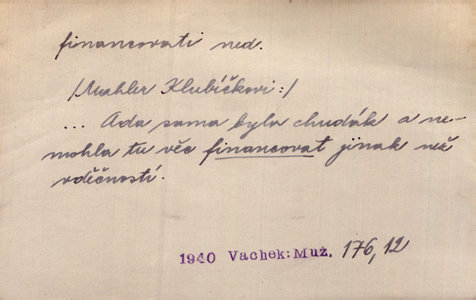 financovati ned.
/Mahler Klubíčkovi:/
... Ada sama byla chudák a ne-
mohla tu věc financovat jinak než
vděčností.
1940 Vachek: Muž, 176,12